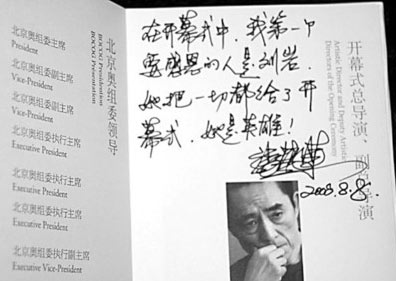 北京奥组委领导
BOCOG Presidential
BOCOG Presentation
北京奥组委主席
President
北京奥组委副主席
Vice-President
北京奥组委副主席
Vice-President
北京奥组委执行主席
Executive President
北京奥组委执行主席
Executive President
北京奥组委执行主席
Executive President
北京奥组委执行副主席
Executive Vice-President
在开幕式中,我第一个
要感恩的人是刘岩.
她把一切都给了开
幕式,她是英雄!
张艺谋
2008.8.8.
开幕式总导演、副总导演
Artistic Director and Deputy Artistic
Directors of the Opening Ceremony